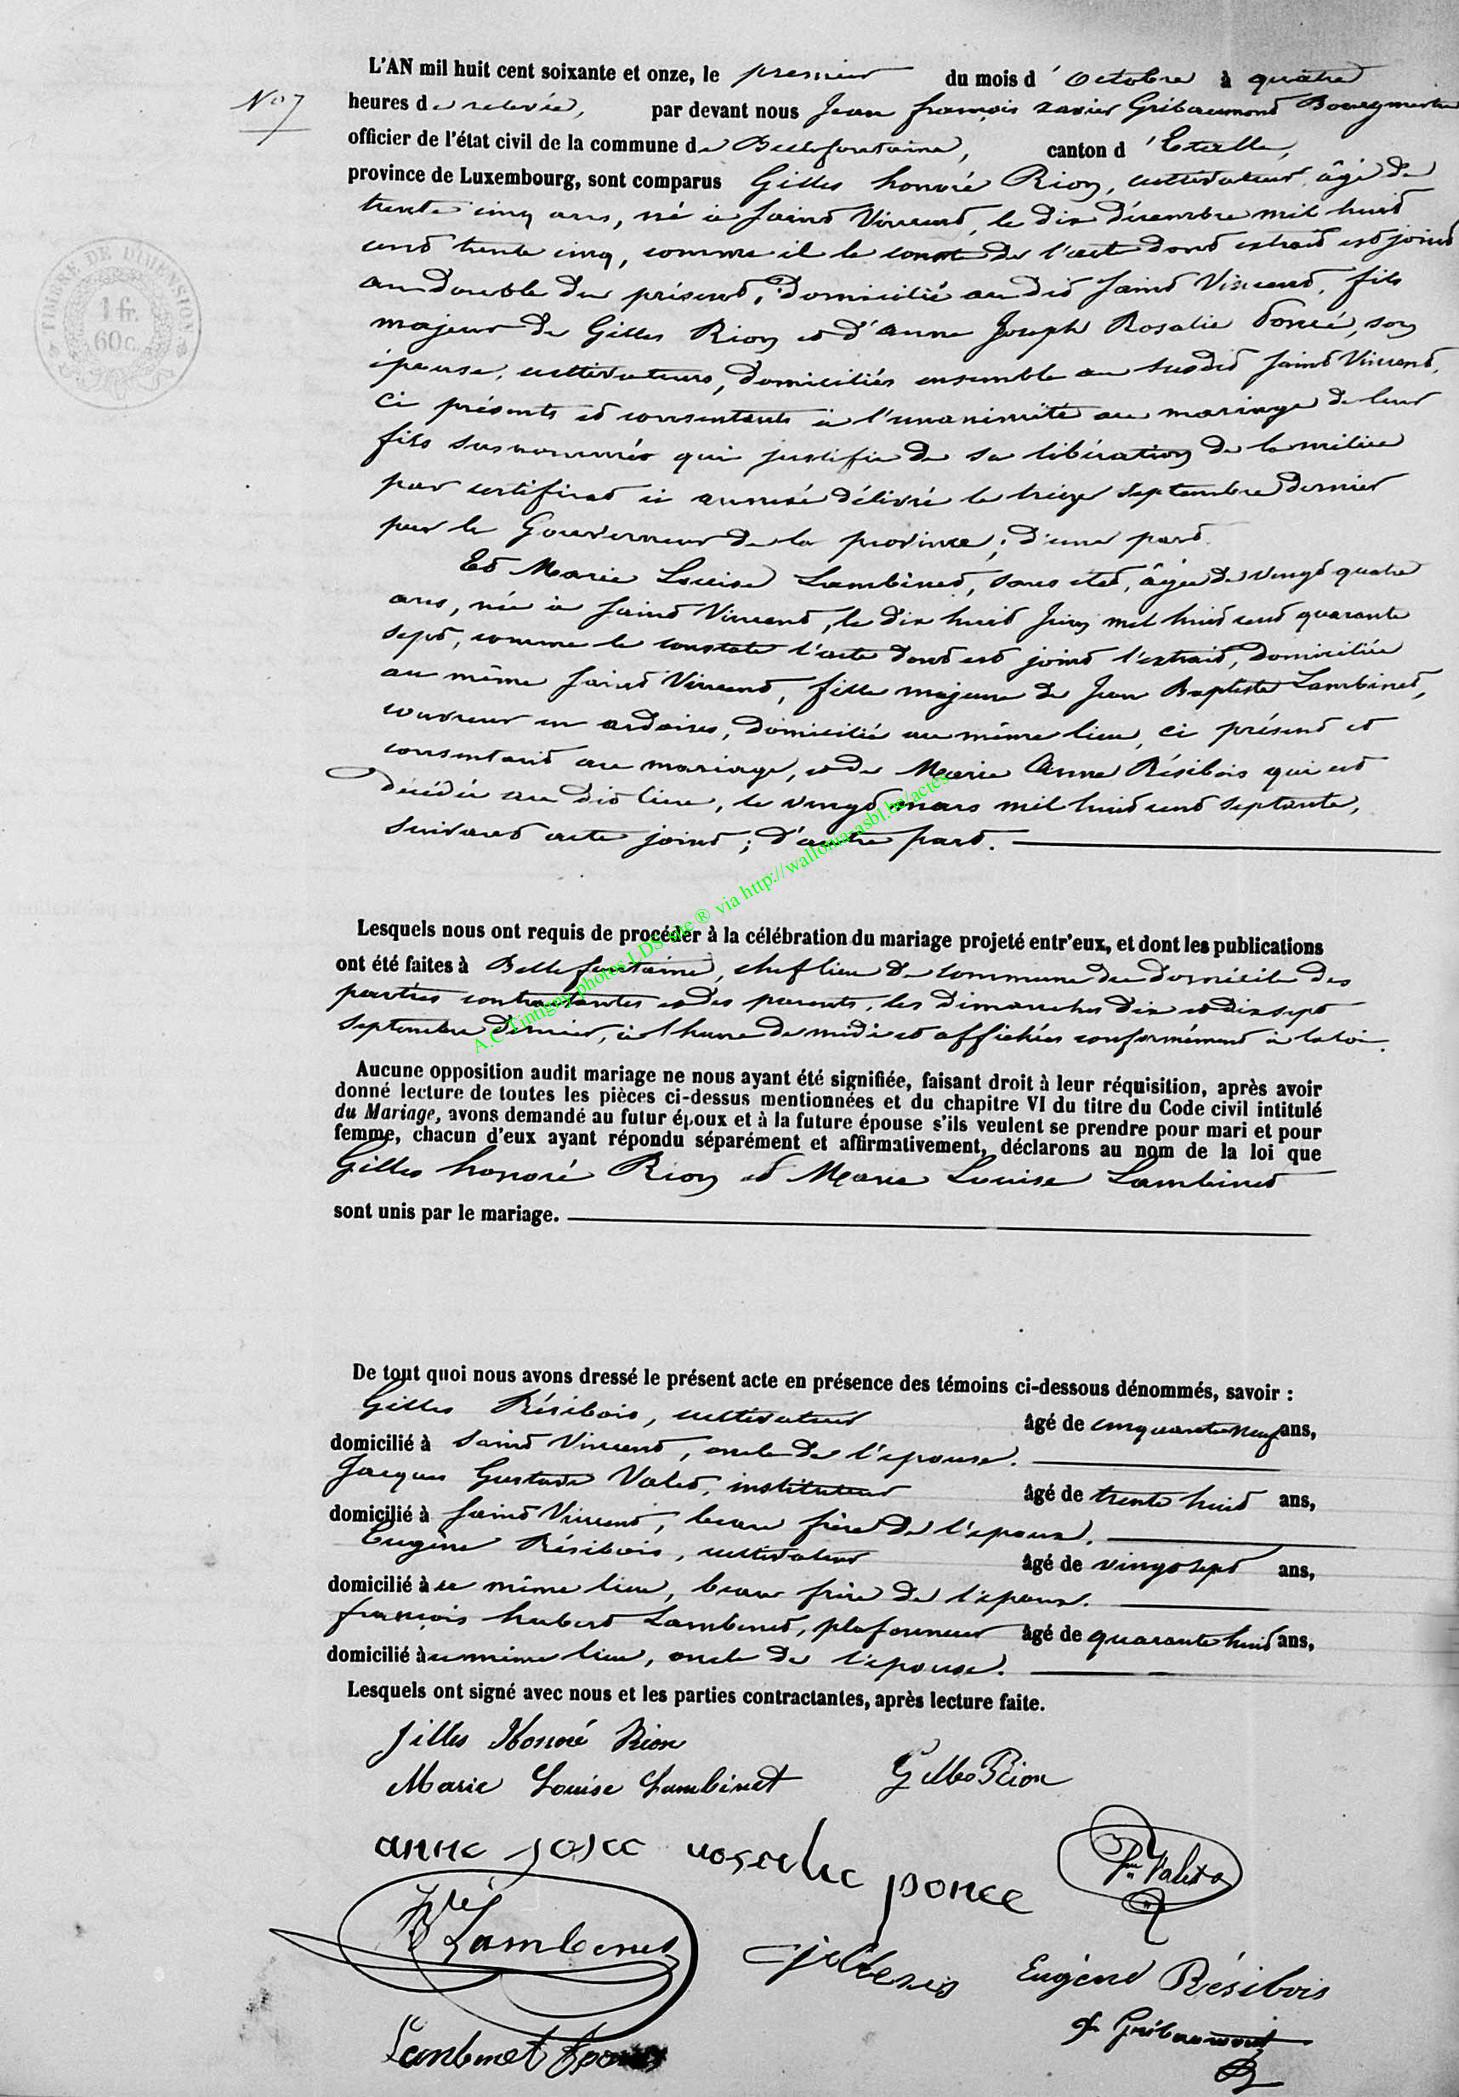 L'AN mil huit cent soixante et onze, le premier du mois d'octobre à quatre
N° 7
heures de relevée, par devant nous Jean françois xavier Gribaumont Bourgmestre
officier de l'état civil de la commune de Bellefontaine, canton d'Etalle,
province de Luxembourg, sont comparus Gilles honoré Rion, cultivateur, âgé de
trente cinq ans, né à Saint Vincent, le dix décembre mil huit
cent trente cinq, comme il le conste de l'acte dont extrait est joint
au double du présent, Domicilié au dit Saint Vincent, fils
majeur de Gilles Rion et d'anne Joseph Rosalie Poncé, son
épouse, cultivateurs, domiciliés ensemble au susdit Saint Vincent,
ci présents et consentants à l'unanimité au mariage de leur
fils susnommé qui justifie de sa libération de la milice
par certificat ci annexé délivré le treize septembre dernier
par le Gouverneur de la province; d'une part.
Et Marie Louise Lambinet, sans état, âgée de vingt quatre
ans, née à Saint Vincent, le dix huit Juin mil huit cent quarante
sept, comme le constate l'acte dont est joint l'extrait, domiciliée
au même Saint Vincent, fille majeure de Jean Baptiste Lambinet,
couvreur en ardoises, domicilié au même lieu, ci présent et
consentant au mariage, et de Marie Anne Résibois qui est
décédée au dit lieu, le vingt mars mil huit cent septante,
suivant acte joint; d'autre part.
Lesquels nous ont requis de procéder à la célébration du mariage projeté entr'eux, et dont les publications
ont été faites à Bellefontaine, chef lieu de commune du domicile des
parties contractantes et des parents, les dimanches dix et dix sept
septembre dernier, à l'heure de midi et affichées conformément à la loi.
Aucune opposition audit mariage ne nous ayant été signifiée, faisant droit à leur réquisition, après avoir
donné lecture de toutes les pièces ci-dessus mentionnées et du chapitre VI du titre du Code civil intitulé
du Mariage, avons demandé au futur époux et à la future épouse s'ils veulent se prendre pour mari et pour
femme, chacun d'eux ayant répondu séparément et affirmativement, déclarons au nom de la loi que
Gilles honoré Rion et Marie Louise Lambinet
sont unis par le mariage.
De tout quoi nous avons dressé le présent acte en présence des témoins ci-dessous dénommés, savoir :
Gilles Résibois, cultivateur âgé de cinquante neuf ans,
domicilié à Saint Vincent, oncle de l'épouse.
Jacques Gustave Valet, instituteur âgé de trente huit ans,
domicilié à Saint Vincent, beau frère de l'époux.
Eugène Résibois, cultivateur âgé de vingt sept ans,
domicilié à ce même lieu, beau frère de l'époux.
françois hubert Lambinet, plafonneur âgé de quarante huit ans,
domicilié au même lieu, oncle de l'épouse.
Lesquels ont signé avec nous et les parties contractantes, après lecture faite.
Jilles Honoré Rion
Marie Louise Lambinet Gilles Rion
anne rosalie ponce
Lambinet
Eugène Résibois
Lambinet
Gribaumont
TIMBRE DE DIMENSION
1 fr.
60 c.
A.C. Tintigny photos LDS site ® via http://wallonia-asbl.be/actes